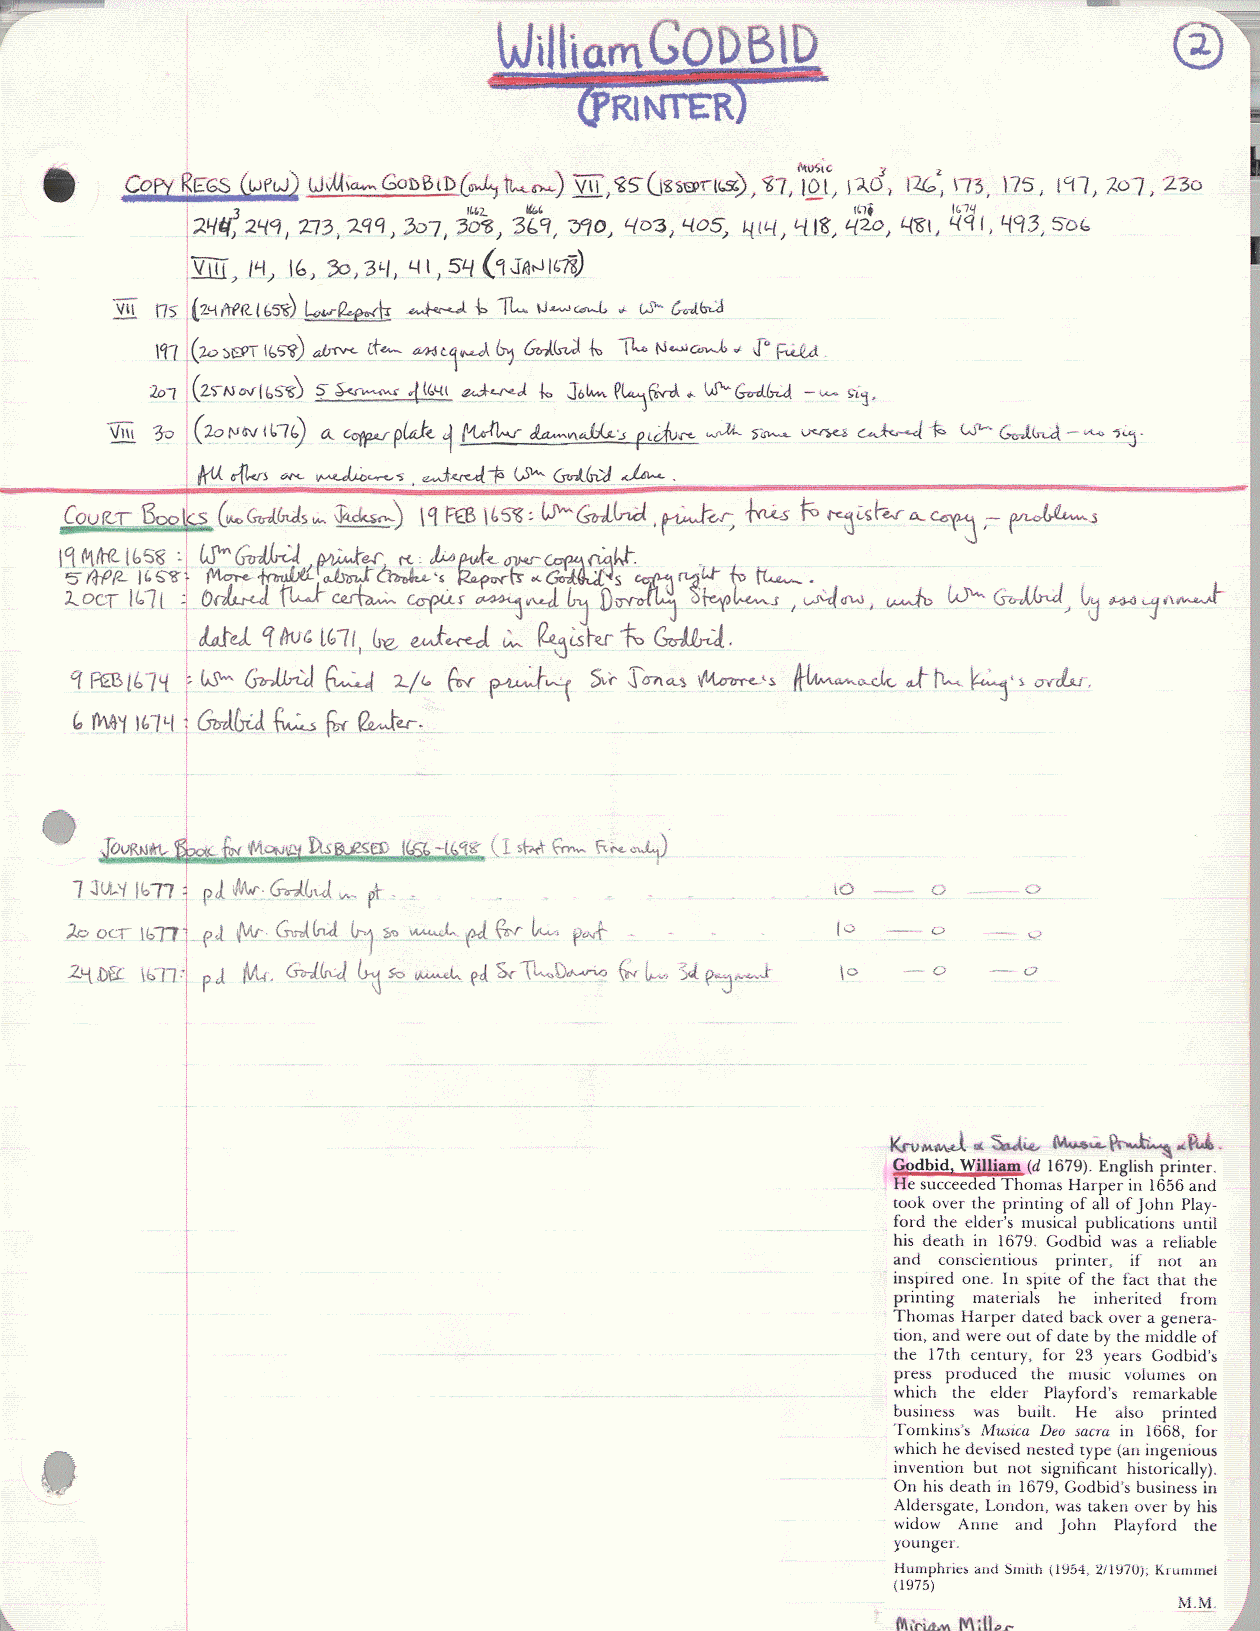 William GODBID
2
(PRINTER)
MUSIC
COPY REGS (WPW) William GODBID (only the one) VII, 85 (18 SEPT 1656), 87, 101, 120³, 126², 173, 175, 197, 207, 230
1662 1666 1674
244³, 249, 273, 299, 307, 308, 369, 390, 403, 405, 414, 418, 420, 481, 491, 493, 506
VIII, 14, 16, 30, 34, 41, 54 (9 JAN 1678)
VII 175 (24 APR 1658) Law Reports entered to Tho Newcomb & Wm Godbid
197 (20 SEPT 1658) above item assigned by Godbid to Tho Newcomb & Jo Field.
207 (25 NOV 1658) 5 Sermons of 1641 entered to John Playford & Wm Godbid – no sig.
VIII 30 (20 NOV 1676) a copper plate of Mother damnable's picture with some verses entered to Wm Godbid – no sig.
All others are mediocres, entered to Wm Godbid alone.
COURT BOOKS (no Godbids in Jackson) 19 FEB 1658: Wm Godbid, printer, tries to register a copy, – problems
19 MAR 1658: Wm Godbid, printer, re: dispute over copyright.
5 APR 1658: More trouble about Crooke's Reports & Godbid's copyright to them.
2 OCT 1671: Ordered that certain copies assigned by Dorothy Stephens, widow, unto Wm Godbid, by assignment
dated 9 AUG 1671, be entered in Register to Godbid.
9 FEB 1674: Wm Godbid fined 2/6 for printing Sir Jonas Moore's Almanack at the King's order.
6 MAY 1674: Godbid fines for Renter.
JOURNAL BOOK for MONEY DISBURSED 1656-1698 (I start from Fire only)
7 JULY 1677: pd Mr. Godbid in pt . . . . . . . 10 — 0 — 0
20 OCT 1677: pd Mr. Godbid by so much pd for his part - - - - 10 — 0 — 0
24 DEC 1677: pd Mr. Godbid by so much pd Sr Tho Davis for his 3d payment 10 — 0 — 0
Krummel & Sadie Music Printing & Pub.
Godbid, William (d 1679). English printer.
He succeeded Thomas Harper in 1656 and
took over the printing of all of John Play-
ford the elder's musical publications until
his death in 1679. Godbid was a reliable
and conscientious printer, if not an
inspired one. In spite of the fact that the
printing materials he inherited from
Thomas Harper dated back over a genera-
tion, and were out of date by the middle of
the 17th century, for 23 years Godbid's
press produced the music volumes on
which the elder Playford's remarkable
business was built. He also printed
Tomkins's Musica Deo sacra in 1668, for
which he devised nested type (an ingenious
invention but not significant historically).
On his death in 1679, Godbid's business in
Aldersgate, London, was taken over by his
widow Anne and John Playford the
younger.
Humphries and Smith (1954, 2/1970); Krummel
(1975)
M.M.
Miriam Miller